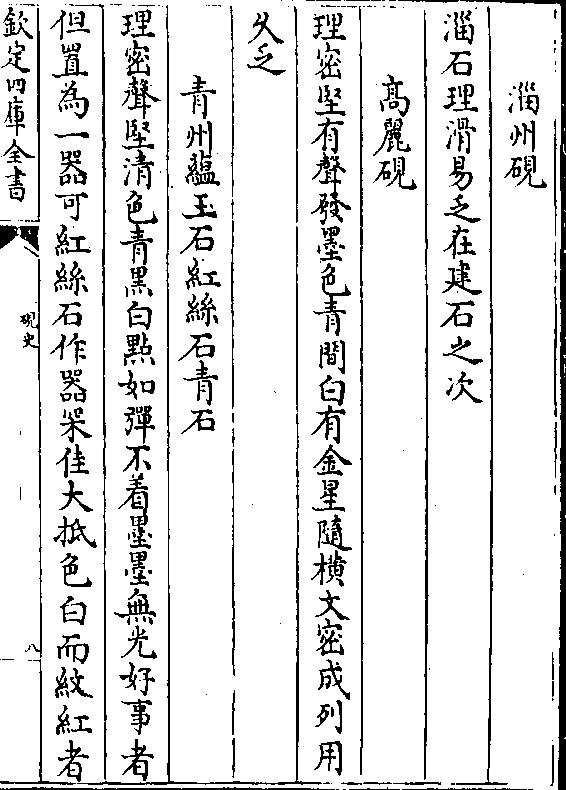 淄州硯
淄石理滑易乏在建石之次
高麗硯
理密堅有聲發墨色青間白有金星隨横文密成列用
乆乏
青州蘊玉石紅絲石青石
理密聲堅清色青黒白點如彈不着墨墨無光好事者
但置為一器可紅絲石作器㝡佳大抵色白而紋紅者
欽定四庫全書
硯史
八